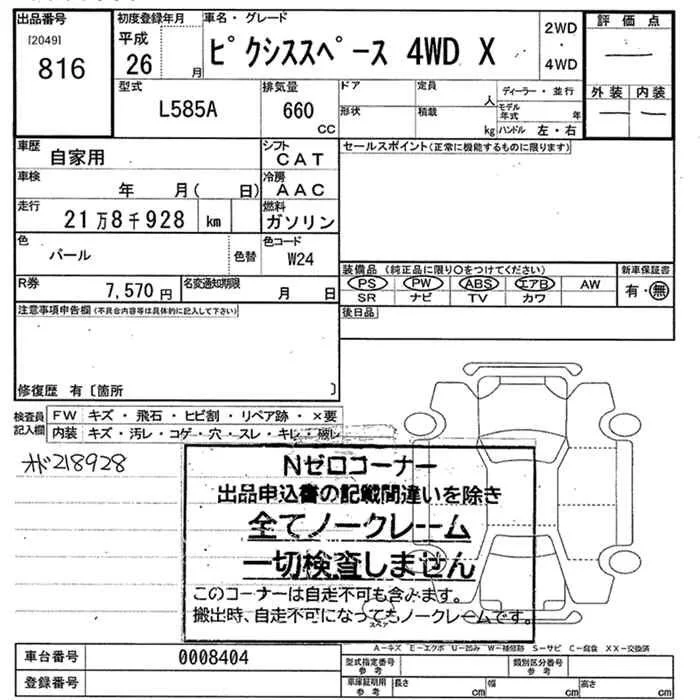 出品番号
[2049]
816
初度登録年月
平成
26 月
車名・グレード
ピクシススペース 4WD X
2WD
・
4WD
評価点
—
外装 内装
— —
型式
L585A
排気量
660
CC
ドア
定員
人
形状
積載
kg
ディーラー・並行
モデル年式 年
ハンドル 左・右
車歴
自家用
シフト
CAT
車検
年 月( 日)
冷房
AAC
走行
21万8千928 km
燃料
ガソリン
色
パール
色替
色コード
W24
R券
7,570円
名変通知期限
月 日
セールスポイント(正常に機能するものに限ります)
装備品 (純正品に限り○をつけてください)
新車保証書
PS PW ABS エアB AW
SR ナビ TV カワ
有・無
後日品
注意事項申告欄(不具合内容等は具体的に記入して下さい)
修復歴 有〔箇所 〕
検査員記入欄
FW キズ・飛石・ヒビ割・リペア跡・×要
内装 キズ・汚レ・コゲ・穴・スレ・キレ・破レ
218928
Nゼロコーナー
出品申込書の記載間違いを除き
全てノークレーム
一切検査しません
このコーナーは自走不可も含みます。
搬出時、自走不可になってもノークレームです。
スペア
A－キズ E－エクボ U－凹み W－補修跡 S－サビ C－腐食 XX－交換済
車台番号
0008404
登録番号
型式指定番号
参考
類別区分番号
参考
車庫証明用
参考
長さ cm
幅 cm
高さ cm